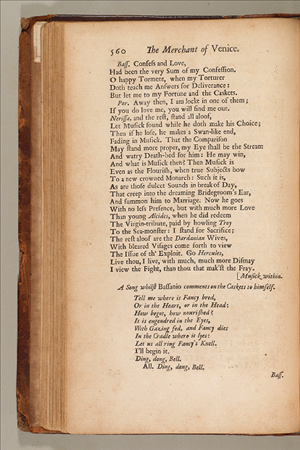 560 The Merchant of Venice.
Bass. Confess and Love,
Had been the very Sum of my Confession.
O happy Torment, when my Torturer
Doth teach me Answers for Deliverance:
But let me to my Fortune and the Caskets.
Por. Away then, I am lockt in one of them;
If you do love me, you will find me out.
Nerissa, and the rest, stand all aloof,
Let Musick sound while he doth make his Choice;
Then if he lose, he makes a Swan-like end,
Fading in Musick. That the Comparison
May stand more proper, my Eye shall be the Stream
And watry Death-bed for him: He may win,
And what is Musick then? Then Musick is
Even as the Flourish, when true Subjects bow
To a new crowned Monarch: Such it is,
As are those dulcet Sounds in break of Day,
That creep into the dreaming Bridegroom's Ear,
And summon him to Marriage. Now he goes
With no less Presence, but with much more Love
Than young Alcides, when he did redeem
The Virgin-tribute, paid by howling Troy
To the Sea-monster: I stand for Sacrifice;
The rest aloof are the Dardanian Wives,
With bleared Visages come forth to view
The Issue of th' Exploit. Go Hercules,
Live thou, I live, with much, much more Dismay
I view the Fight, than thou that mak'st the Fray.
[Musick within.
A Song whilst Bassanio comments on the Caskets to himself.
Tell me where is Fancy bred,
Or in the Heart, or in the Head:
How begot, how nourished?
It is engendred in the Eyes,
With Gazing fed, and Fancy dies
In the Cradle where it lyes:
Let us all ring Fancy's Knell.
I'll begin it.
Ding, dang, Bell.
All. Ding, dang, Bell.
Bass.